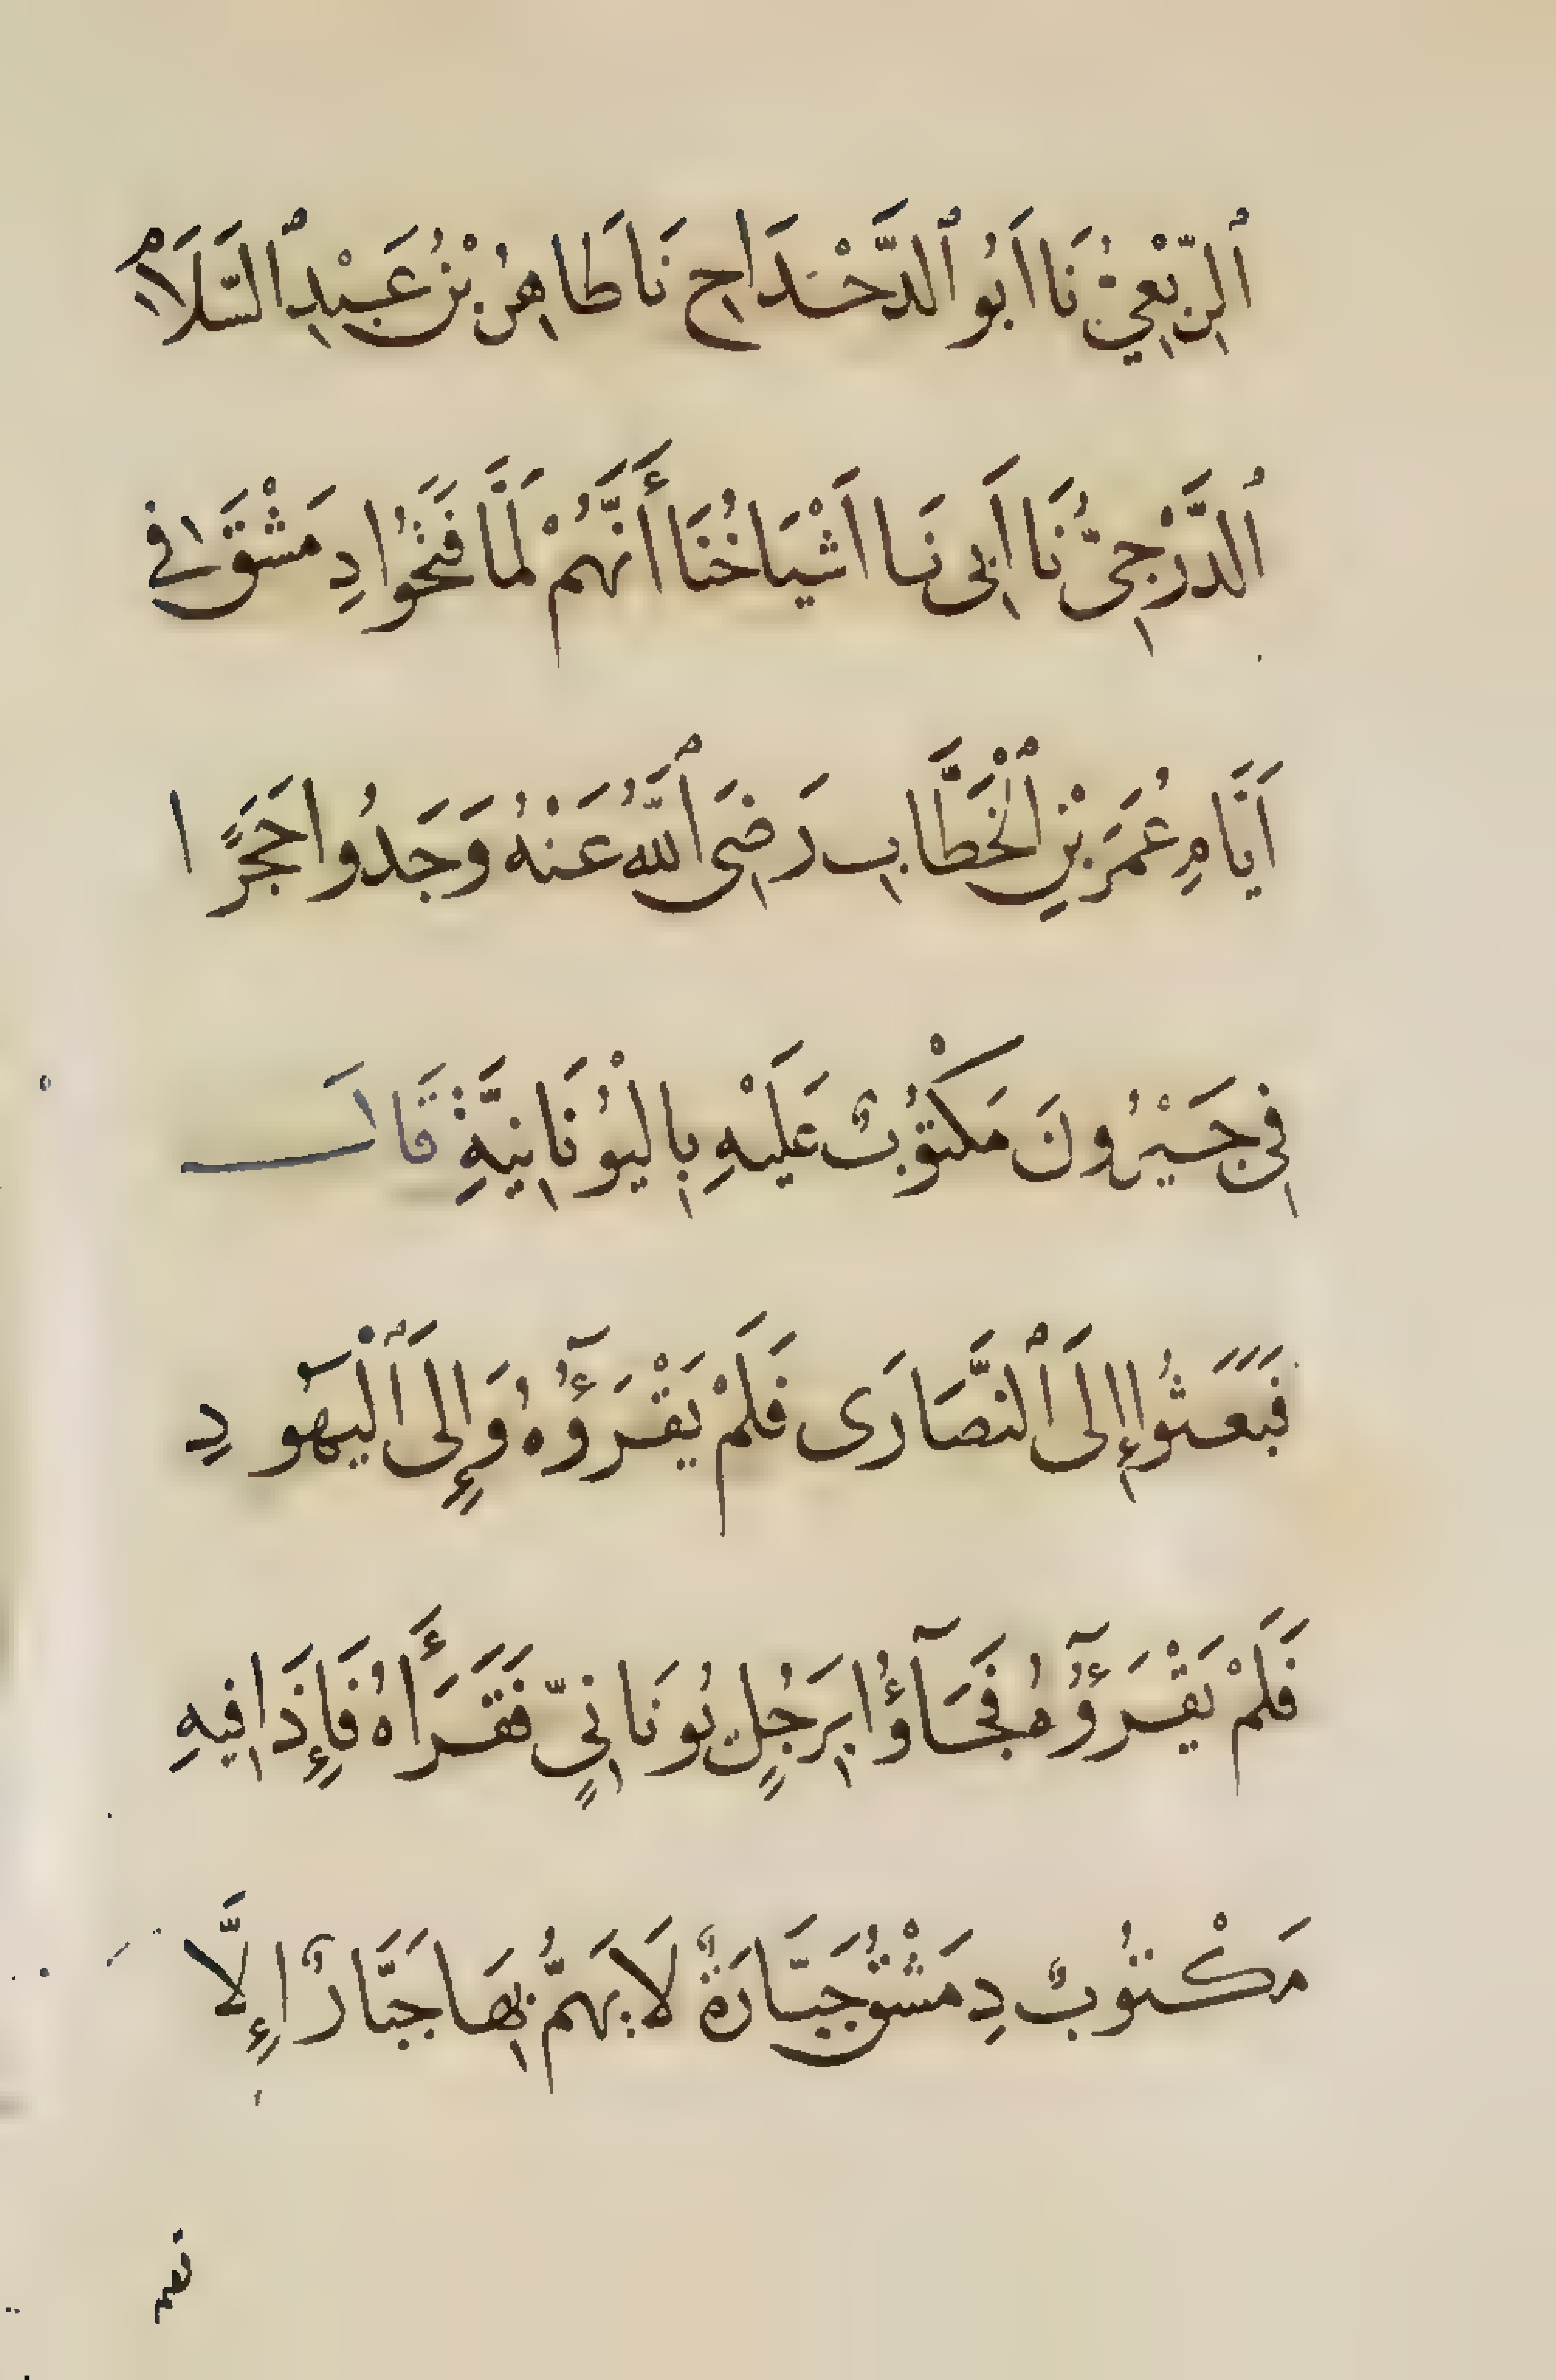 ٱلرِّبْعِيُّ نَا اَبُو ٱلدَّحْدَاحِ نَا طَاهِرُ بْنُ عَبْدِ ٱلسَّلَامِ
ٱلدَّرْجِىُّ نَا اَبِى نَا اَشْيَاخُنَا أَنَّهُمْ لَمَّا فَتَحُوا دِمَشْقَ فِى
اَيَّامِ عُمَرَ بْنِ ٱلْخَطَّابِ رَضِىَ ٱللَّهُ عَنْهُ وَجَدُوا حَجَرًا
فِى جَيْرُونَ مَكْتُوبٌ عَلَيْهِ بِالْيُونَانِيَّةِ قَالَ
فَبَعَثُوا إِلَى ٱلنَّصَارَى فَلَمْ يَقْرَؤُهُ وَإِلَى ٱلْيَهُودِ
فَلَمْ يَقْرَؤُهُ فَجَآؤُا بِرَجُلٍ يُونَانِيٍّ فَقَرَأَهُ فَإِذَا فِيهِ
مَكْتُوبٌ دِمَشْقُ جَبَّارَةٌ لَا يَهُمُّ بِهَا جَبَّارٌ إِلَّا